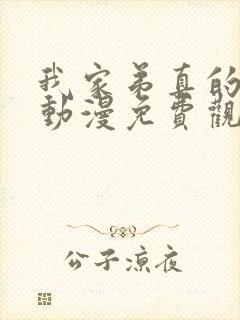 我家弟真的
動漫免費觀
公子涼夜